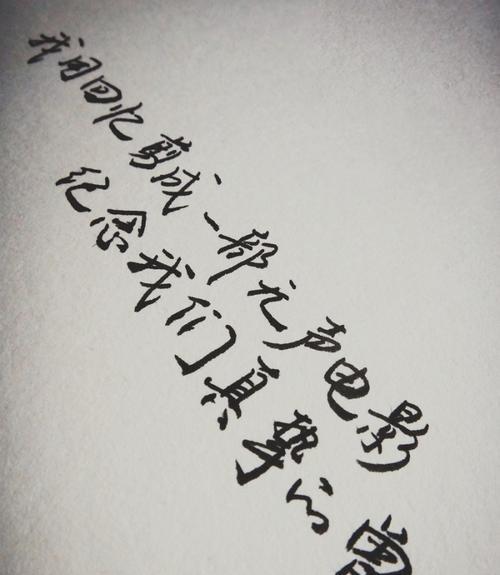 我用回忆剪成一部无声电影
纪念我们真挚的曾